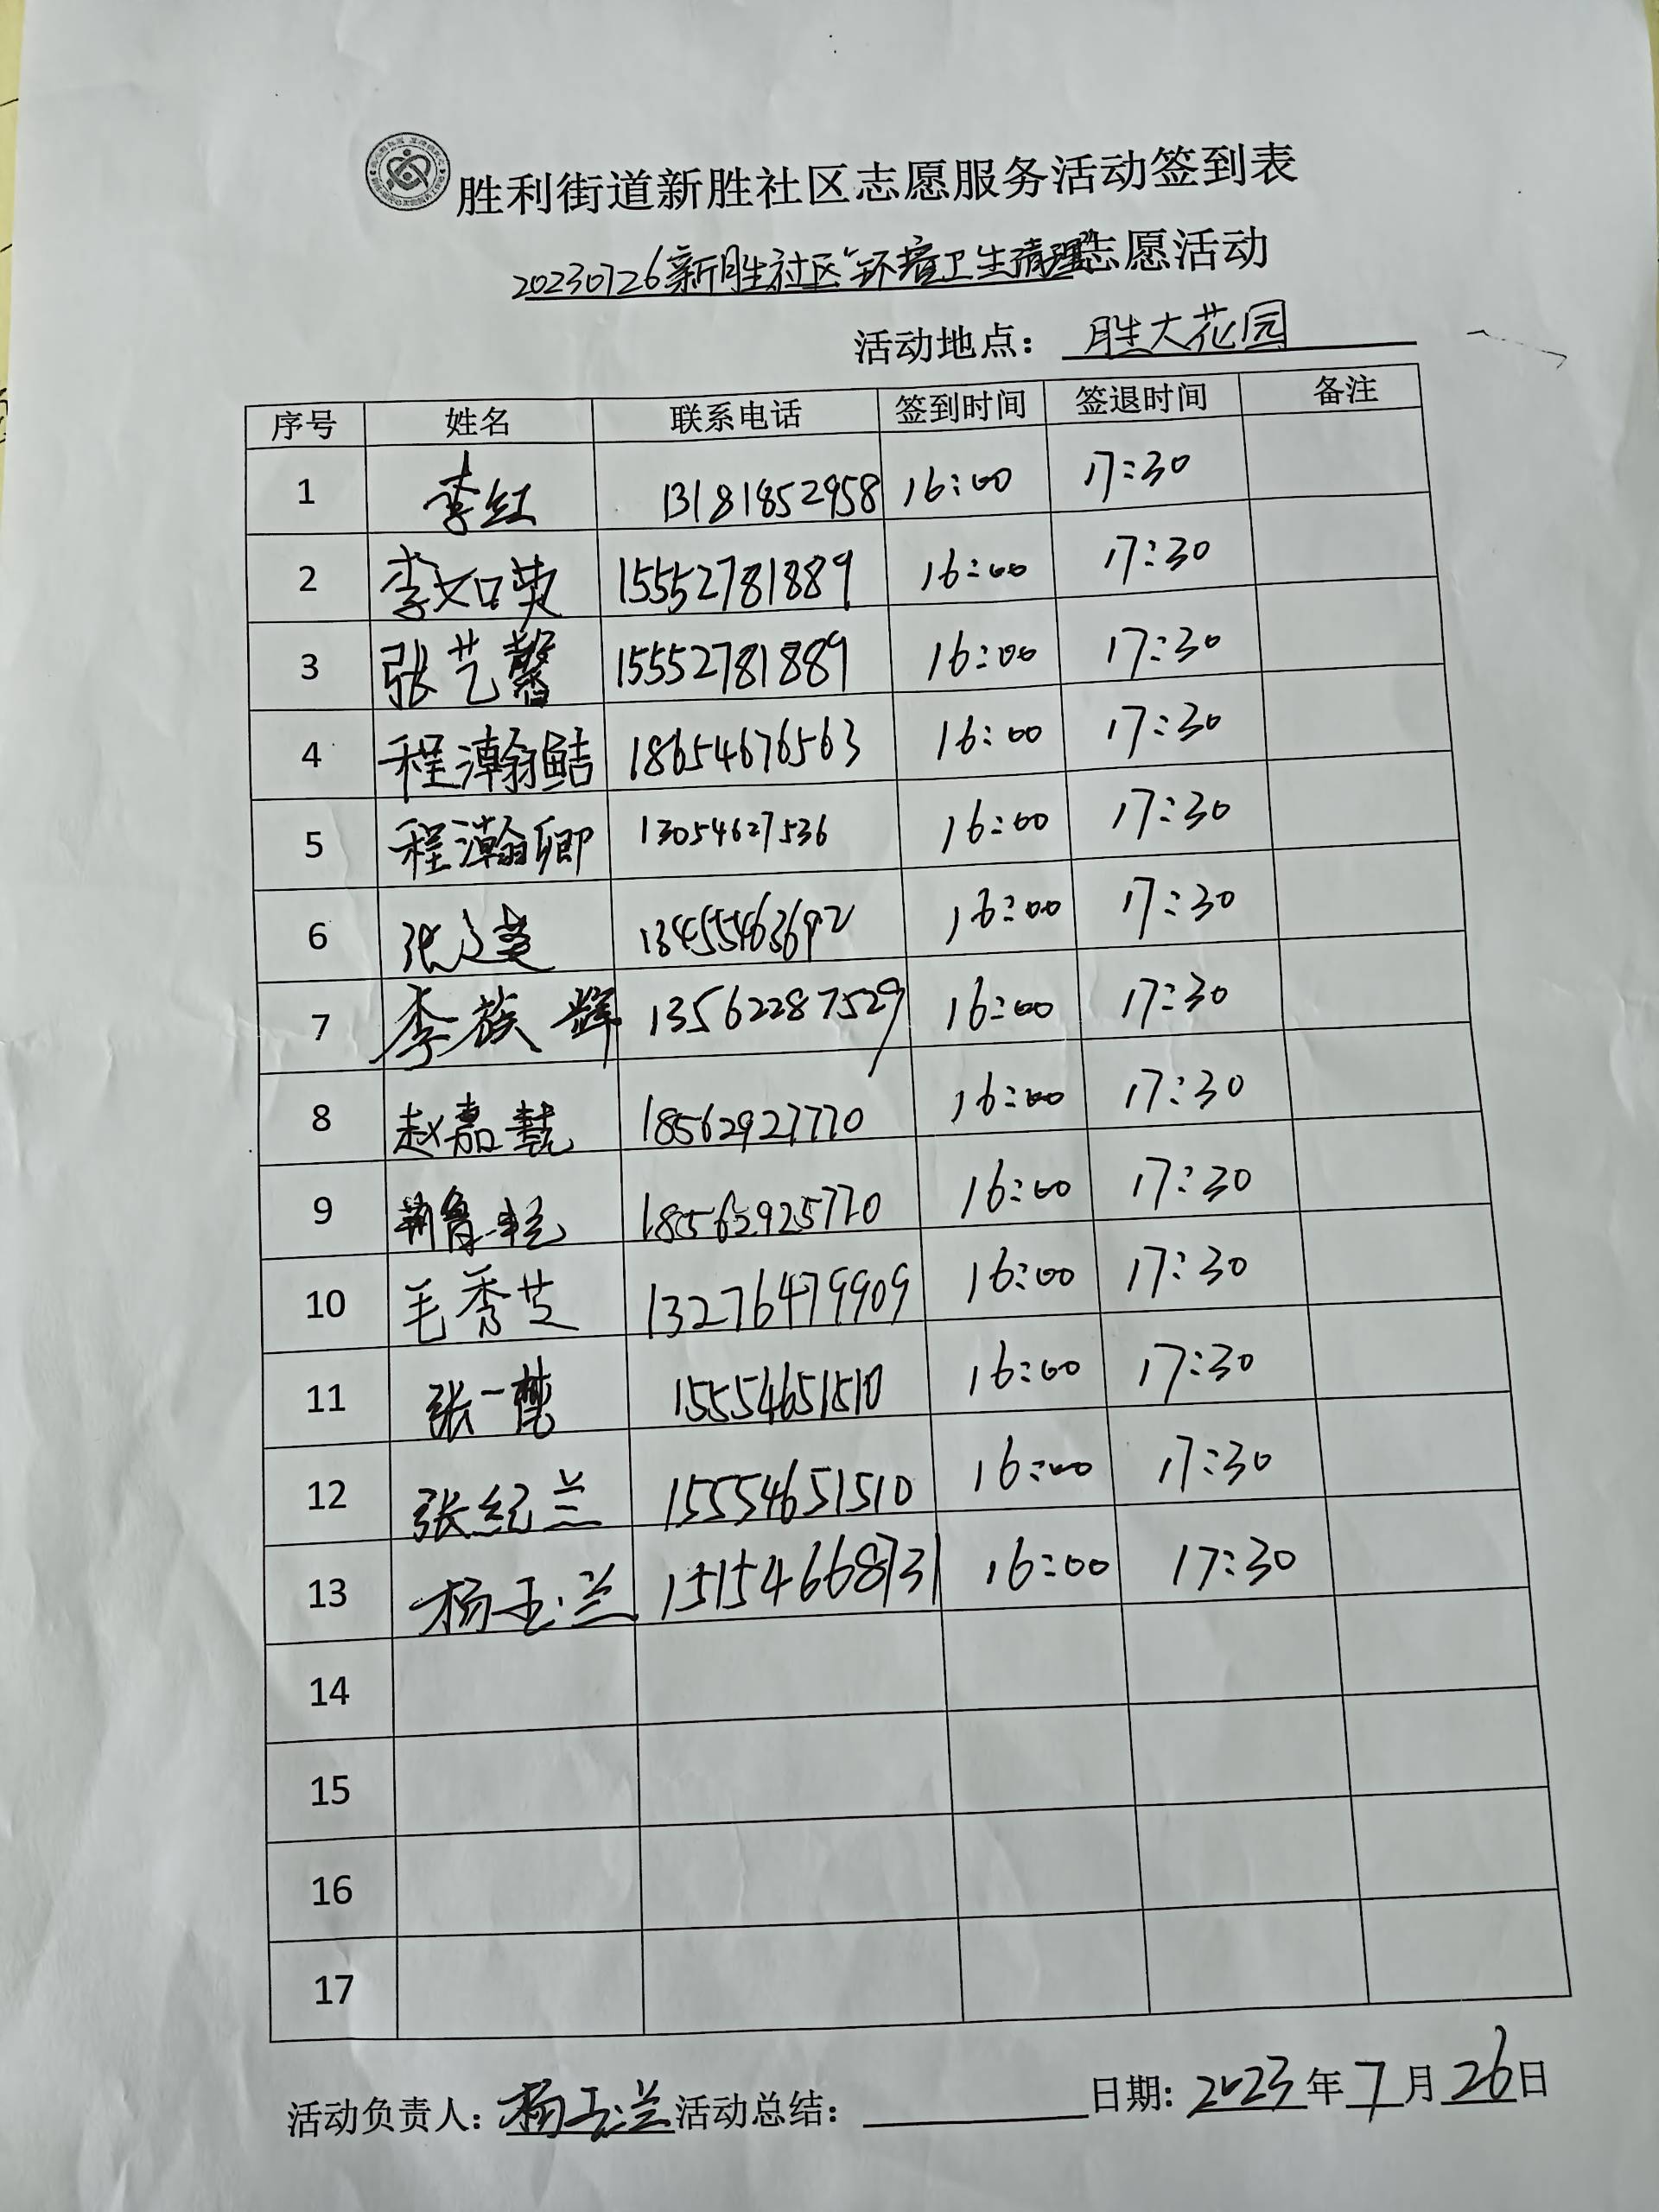 胜利街道新胜社区志愿服务活动签到表
20230726新胜社区"环境卫生清理"志愿活动
活动地点：胜大花园
序号 姓名 联系电话 签到时间 签退时间 备注
1 李红 13181852958 16:00 17:30
2 李如英 15552781889 16:00 17:30
3 张艺馨 15552781889 16:00 17:30
4 程瀚鲒 18654676563 16:00 17:30
5 程瀚卿 13054627536 16:00 17:30
6 13455463692 16:00 17:30
7 李族辉 13562287529 16:00 17:30
8 赵嘉懿 18562927770 16:00 17:30
9 18562925770 16:00 17:30
10 毛秀芝 13276479909 16:00 17:30
11 张一楚 15554651510 16:00 17:30
12 张纪兰 15554651510 16:00 17:30
13 杨玉兰 15154668731 16:00 17:30
14
15
16
17
活动负责人：杨玉兰 活动总结： 日期：2023年7月26日